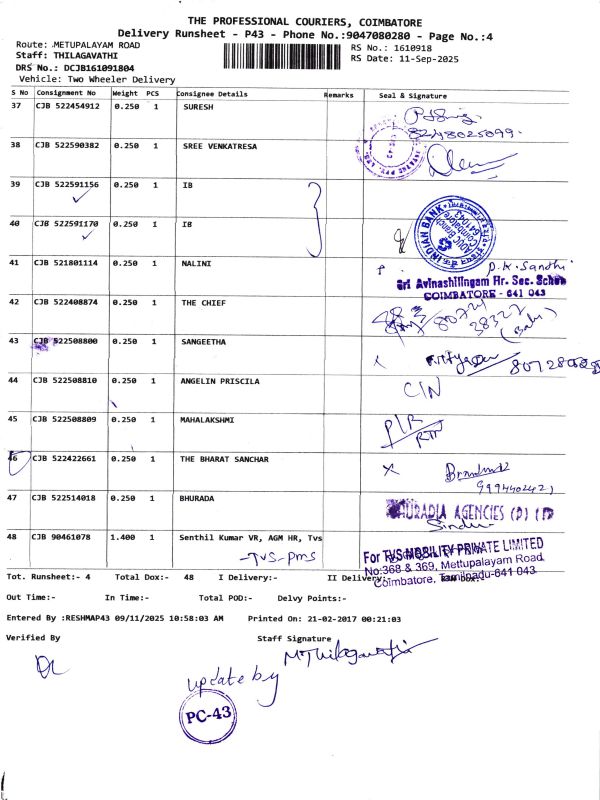 THE PROFESSIONAL COURIERS, COIMBATORE
Delivery Runsheet - P43 - Phone No.:9047080280 - Page No.:4
Route: METUPALAYAM ROAD
RS No.: 1610918
Staff: THILAGAVATHI
RS Date: 11-Sep-2025
DRS No.: DCJB161091804
Vehicle: Two Wheeler Delivery
S No Consignment No Weight PCS Consignee Details Remarks Seal & Signature
37 CJB 522454912 0.250 1 SURESH
8248025099
38 CJB 522590382 0.250 1 SREE VENKATRESA
39 CJB 522591156 0.250 1 IB
40 CJB 522591170 0.250 1 IB
INDIAN BANK
Coimbatore
641043
41 CJB 521801114 0.250 1 NALINI
P.K. Sandhi
Sri Avinashilingam Hr. Sec. School
COIMBATORE - 641 043
42 CJB 522408874 0.250 1 THE CHIEF
80724
38327
(Babu)
43 CJB 522508800 0.250 1 SANGEETHA
44 CJB 522508810 0.250 1 ANGELIN PRISCILA
C/N
45 CJB 522508809 0.250 1 MAHALAKSHMI
P/R
RTN
46 CJB 522422661 0.250 1 THE BHARAT SANCHAR
9994402421
47 CJB 522514018 0.250 1 BHURADA
BHURADIA AGENCIES (P) LTD
Sindu
48 CJB 90461078 1.400 1 Senthil Kumar VR, AGM HR, Tvs
-TVS-PMS
For TVS MOBILITY PRIVATE LIMITED
No:368 & 369, Mettupalayam Road
Coimbatore, Tamilnadu-641 043
Tot. Runsheet:- 4 Total Dox:- 48 I Delivery:- II Delivery:-
Out Time:- In Time:- Total POD:- Delvy Points:-
Entered By :RESHMAP43 09/11/2025 10:58:03 AM Printed On: 21-02-2017 00:21:03
Verified By Staff Signature
M Thilagavathi
update by
PC-43